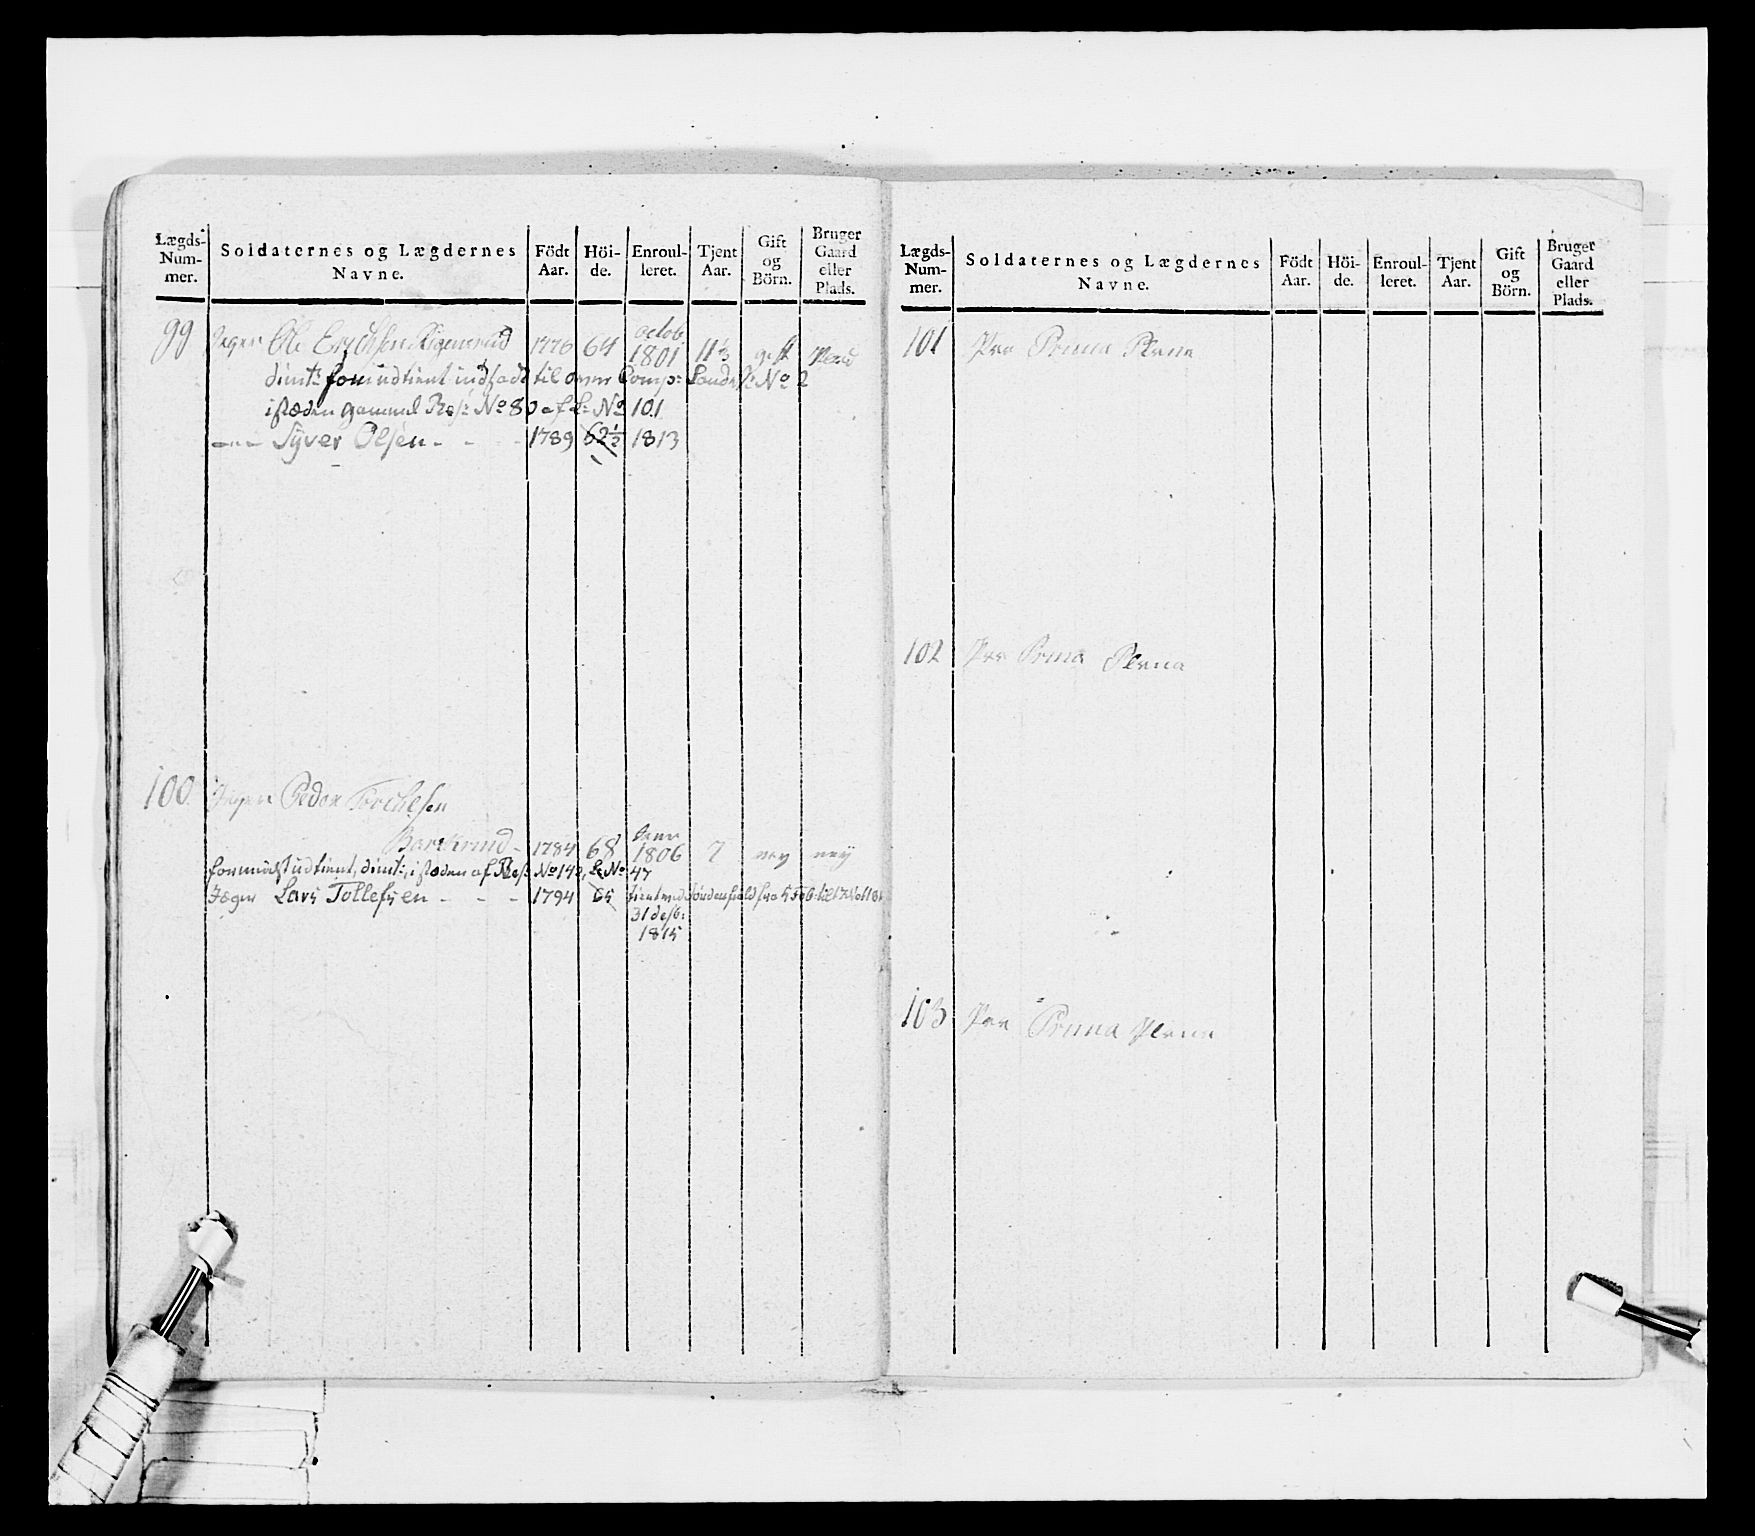 Lægds-Num-mer. Soldaternes og Lægdernes Navne. Födt Aar. Höi-de. Enroul-leret. Tjent Aar. Gift og Börn. Bruger Gaard eller Plads.
99 Jeger Ole Erichsen 1776 64 octob: 1801 11 1/3 gift Plads
dimt: som udtient indsadt til Comp: Lands: No 2
istæden gammel Res: No 80 af L: No 101
Syver Olsen - - - 1789 62½ 1813
100 Jeger Peder Torchelsen
- 1784 68 1806 7 ney ney
formedelst udtient, dimt:, istæden af Res: No 140, L: No 47
Jæger Lars Tollefsen - - - 1794 65 tient ved Søndenfield fra 5 Feb: til
31 desb:
1815
Lægds-Num-mer. Soldaternes og Lægdernes Navne. Födt Aar. Höi-de. Enroul-leret. Tjent Aar. Gift og Börn. Bruger Gaard eller Plads.
101 Prima Plana
102 Prima Plana
103 Prima Plana